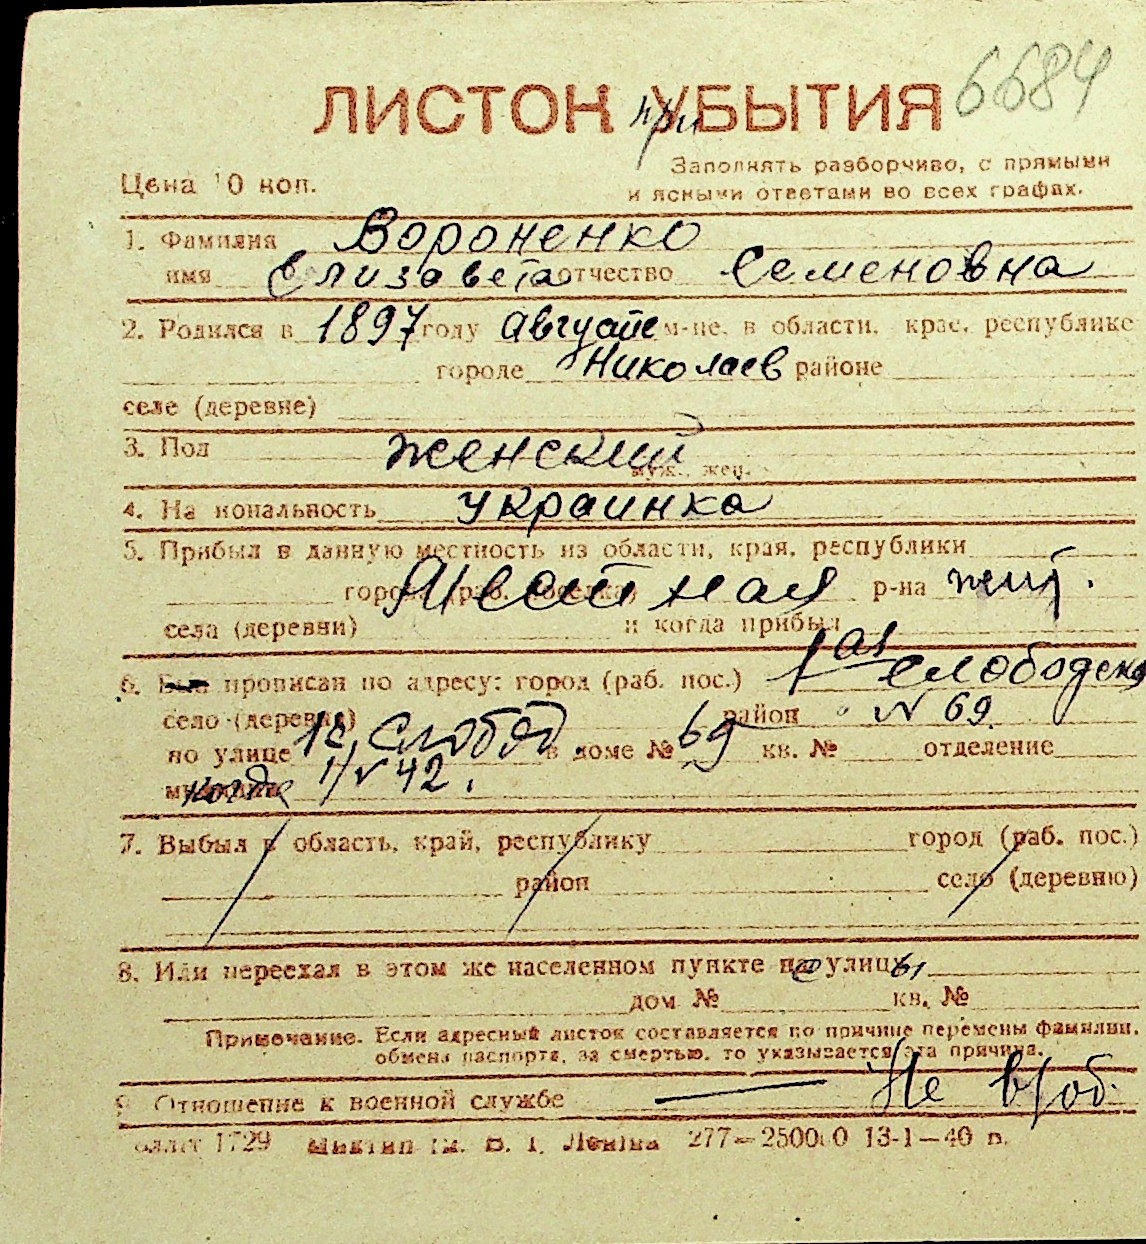 6684
ЛИСТОК при УБЫТИЯ
Заполнять разборчиво, с прямыми
Цена 10 коп.
и ясными ответами во всех графах.
1. Фамилия Вороненко
имя Елизавета отчество Семеновна
2. Родился в 1897 году августе м-це, в области, крае, республике
городе Николаев районе
селе (деревне)
3. Пол женский
муж., жен.
4. Национальность украинка
5. Прибыл в данную местность из области, края, республики
города (раб. поселка) Местная р-на жит.
села (деревни) и когда прибыл
6. Был прописан по адресу: город (раб. пос.) 1ая Слободска
село (деревня) район № 69
по улице 1а Слобод в доме № 69 кв. № отделение
когда 1/IV 42.
7. Выбыл в область, край, республику город (раб. пос.)
район село (деревню)
8. Или переехал в этом же населенном пункте с улицы
дом № кв. №
Примечание. Если адресный листок составляется по причине перемены фамилии,
обмена паспорта, за смертью, то указывается эта причина.
9. Отношение к военной службе — Не в/об.
1729 им. В. І. Леніна 277—250000 13-1—40 р.